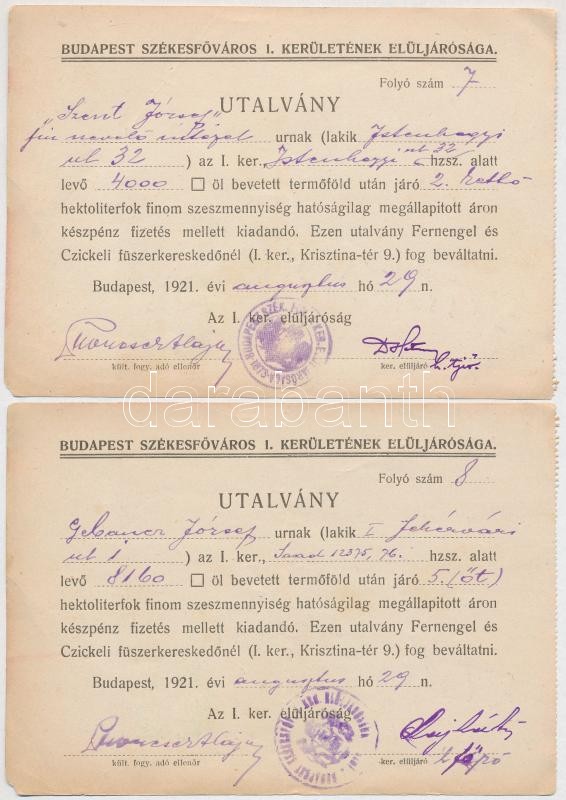 BUDAPEST SZÉKESFŐVÁROS I. KERÜLETÉNEK ELÜLJÁRÓSÁGA.
Folyó szám 7
UTALVÁNY
„Szent József”
fiu nevelő intézet urnak (lakik Istenhegyi
ut 32 ) az I. ker., Istenhegyi ut 32 hzsz. alatt
levő 4000 □ öl bevetett termőföld után járó 2. Kettő
hektoliterfok finom szeszmennyiség hatóságilag megállapitott áron
készpénz fizetés mellett kiadandó. Ezen utalvány Fernengel és
Czickeli füszerkereskedőnél (I. ker., Krisztina-tér 9.) fog beváltatni.
Budapest, 1921. évi augusztus hó 29 n.
Az I. ker. elüljáróság
kült. fogy. adó ellenőr ker. elüljáró
darabanth
BUDAPEST SZÉKESFŐVÁROS I. KERÜLETÉNEK ELÜLJÁRÓSÁGA.
Folyó szám 8
UTALVÁNY
Gebauer József urnak (lakik I Fehérvári
ut 1 ) az I. ker., 12375, 76. hzsz. alatt
levő 8160 □ öl bevetett termőföld után járó 5. (öt)
hektoliterfok finom szeszmennyiség hatóságilag megállapitott áron
készpénz fizetés mellett kiadandó. Ezen utalvány Fernengel és
Czickeli füszerkereskedőnél (I. ker., Krisztina-tér 9.) fog beváltatni.
Budapest, 1921. évi augusztus hó 29 n.
Az I. ker. elüljáróság
kült. fogy. adó ellenőr ker. elüljáró